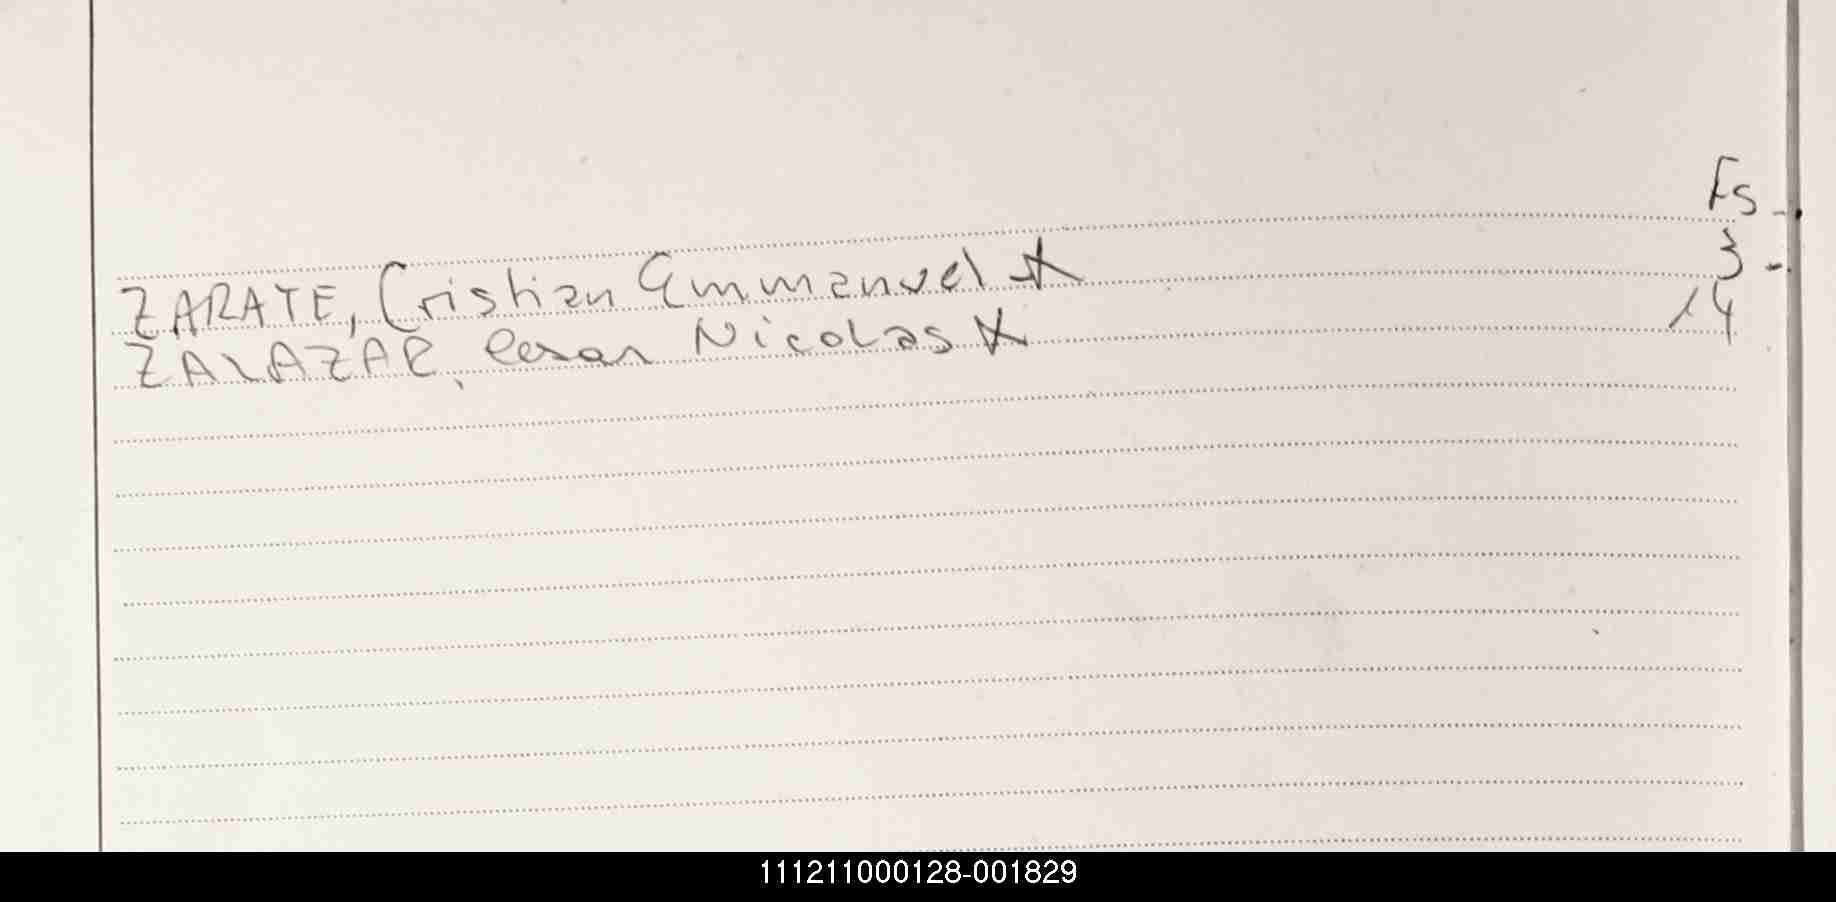 Fs.
ZARATE, Cristian Emmanuel 3
ZALAZAR, Cesar Nicolas 14
111211000128-001829